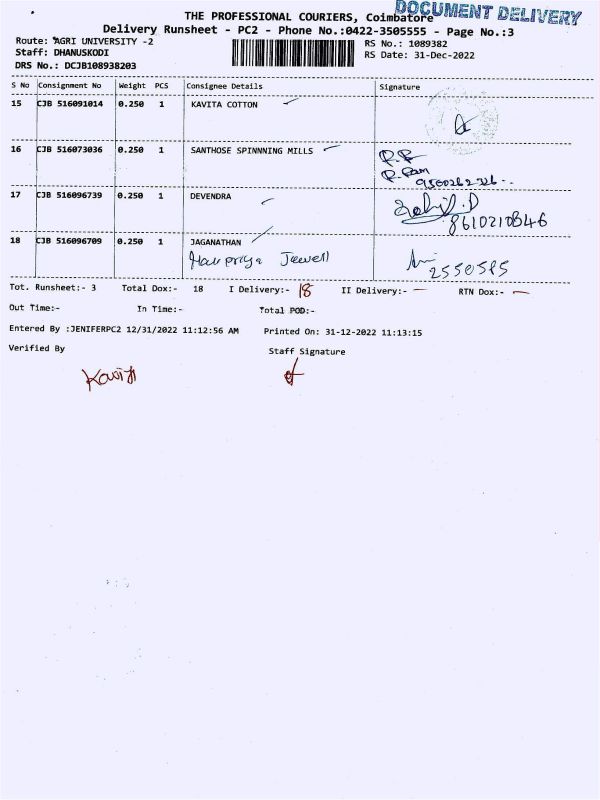 DOCUMENT DELIVERY
THE PROFESSIONAL COURIERS, Coimbatore
Delivery Runsheet - PC2 - Phone No.:0422-3505555 - Page No.:3
Route: AGRI UNIVERSITY -2
RS No.: 1089382
Staff: DHANUSKODI
RS Date: 31-Dec-2022
DRS No.: DCJB108938203
S No Consignment No Weight PCS Consignee Details Signature
15 CJB 516091014 0.250 1 KAVITA COTTON
16 CJB 516073036 0.250 1 SANTHOSE SPINNNING MILLS
17 CJB 516096739 0.250 1 DEVENDRA
8610210846
18 CJB 516096709 0.250 1 JAGANATHAN
Jewell
2550585
Tot. Runsheet:- 3 Total Dox:- 18 I Delivery:- 18 II Delivery:- — RTN Dox:- —
Out Time:- In Time:- Total POD:-
Entered By :JENIFERPC2 12/31/2022 11:12:56 AM Printed On: 31-12-2022 11:13:15
Verified By Staff Signature